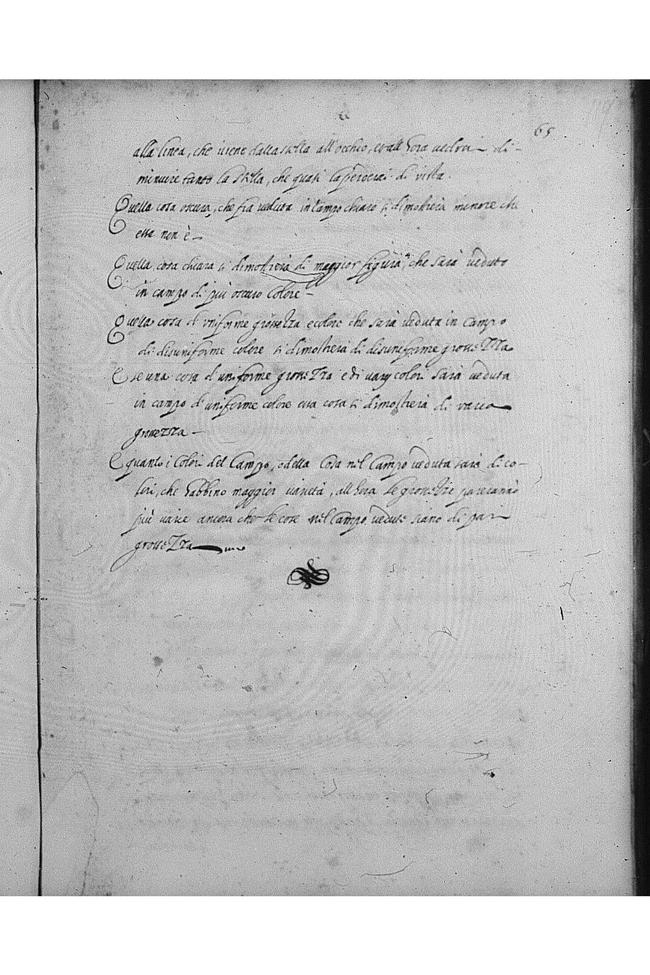 65
alla linea, che viene dalla stella all'occhio, et all'hora vedrai di-
minuire tanto la stella, che quasi la perderai di vista.
Quella cosa oscura, che fia veduta in campo chiaro si dimostrerà minore che
essa non è
Quella cosa chiara si dimostrerà di maggior figura, che sarà veduta
in campo di più oscuro colore
Quella cosa d'uniforme grossezza e colore che sarà veduta in campo
di disuniforme colore si dimostrerà di disuniforme grossezza
E se una cosa d'uniforme grossezza e di varij colori sarà veduta
in campo d'uniforme colore essa cosa si dimostrerà di varia
grossezza
E quanto i colori del campo, o della cosa nel campo veduta sarà di co-
lori, che habbino maggior varietà, all'hora le grossezze pareranno
più varie ancora che le cose nel campo vedute siano di par
grossezza